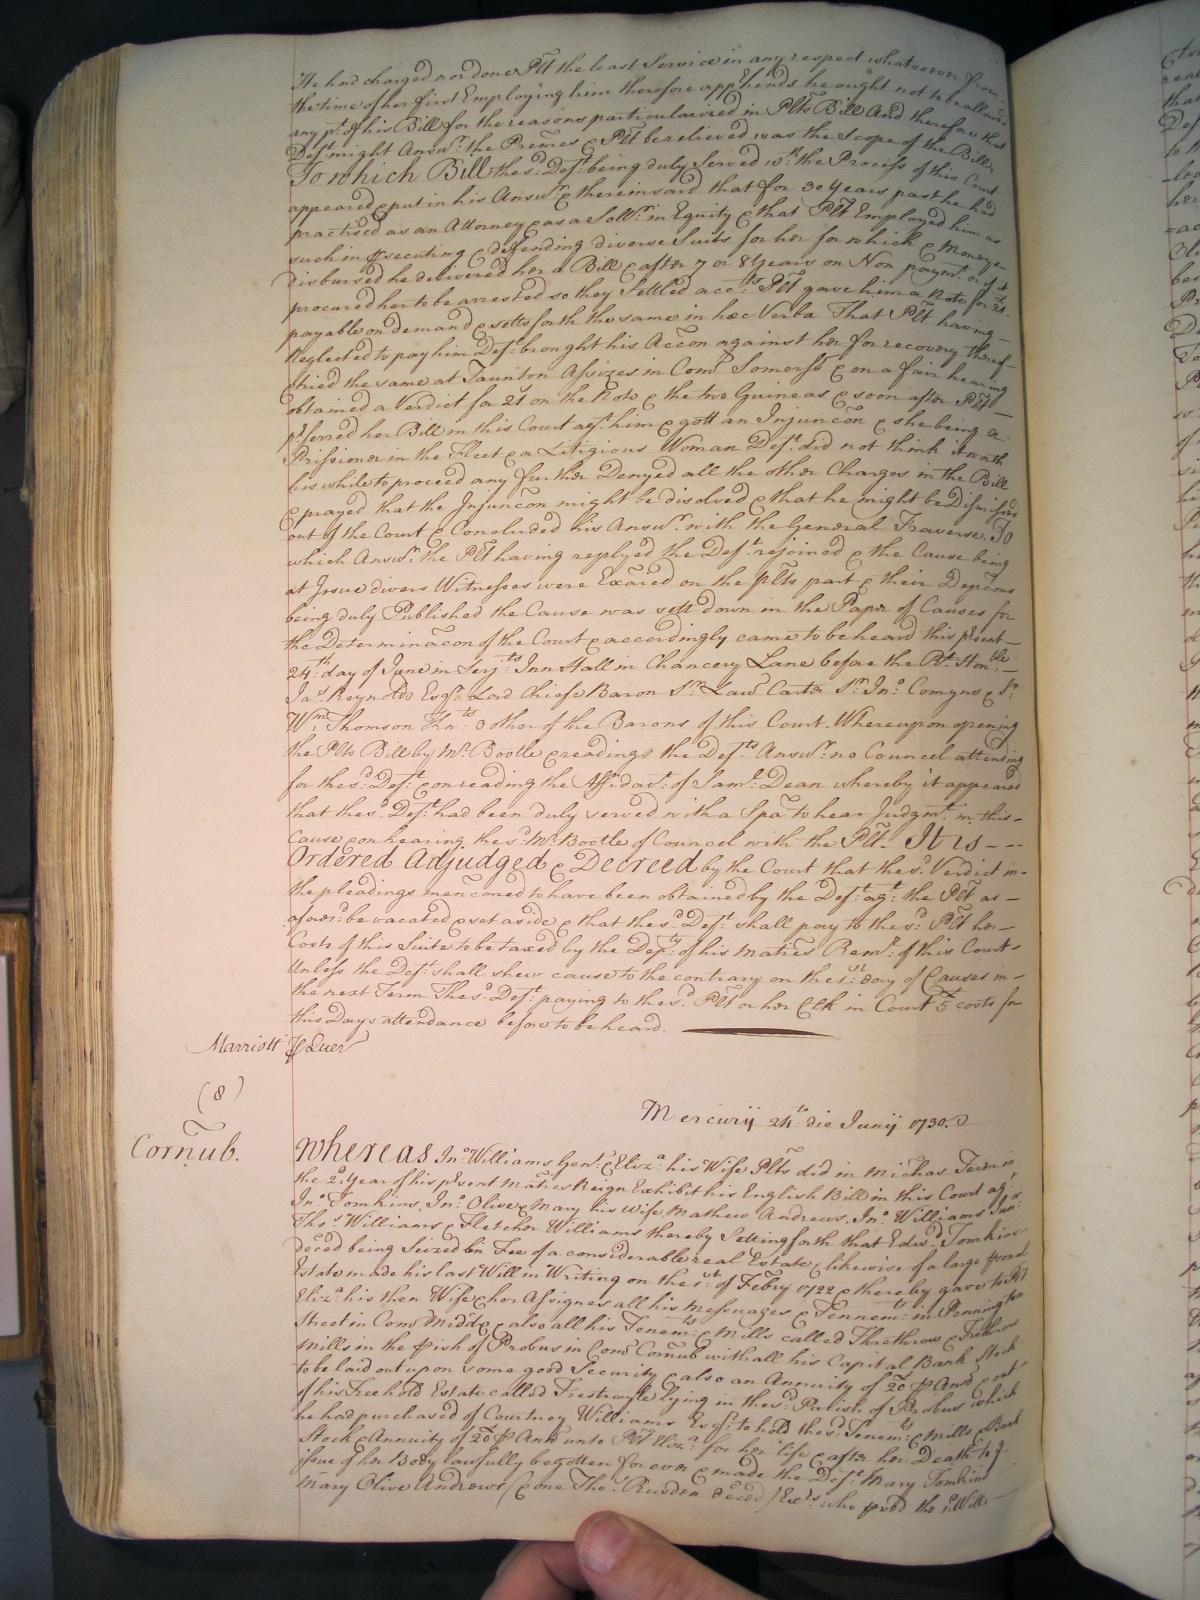 He had charged nor done Plt the least Service in any respect whatsoever from
the time of her first Employing him therefore apprhends he ought not to be allowed
any pt. of his Bill for the reasons particularized in Plts Bill And therefore that
Deft might Answr. the Premes & Plt be relieved was the Scope of the Bill
To which Bill the sd. Deft. being duly Served wth. the Process of this Court
appeared & put in his Answr. & therein said that for 30 Years past he had
practised as an Attorney & as a Sollr. in Equity & that Plt Employed him as
such in psecuting & defending diverse Suits for her for which & Moneys
disbursed he delivered her a Bill & after 7 or 8 Years on Non paymt. of it
procured her to be arrested so they Settled acc:ts Plt gave him a Note for 21.
payable on demand & setts forth the same in hæc Verba That Plt having
Neglected to pay him Deft. brought his Accon against her for recovery thereof
& tried the same at Taunton Assizes in Com Somerst & on a fair hearing
obtained a Verdict for 21 on the Note & the two Guineas & soon after Plt
pferred her Bill in this Court agt. him & gott an Injuncon & she being a
Prissioner in the Fleet & a Litigious Woman Deft. did not think it worth
his while to proceed any further Denyed all the other Charges in the Bill
& prayed that the Injuncon might be disolved & that he might be Dismissed
out of the Court & Concluded his Answr. with the General Traverse. To
which Answr. the Plt having replyed the Deft. rejoined & the Cause being
at Issue divers Witnesses were Exaied on the plts part & their Depcons
being duly Published the Cause was sett down in the Paper of Causes for
the Determinacon of the Court & accordingly came to be heard this psent
24:th day of June in Serj:ts Inn Hall in Chancery Lane before the Rt. Hon:ble
Jas. Reynolds Esqr. Lord Chiefe Baron Sr. Law: Carter Sr. Jno. Comyns & Sr.
Wm. Thomson Kn:ts 3 other of the Barons of this Court. Whereupon opening
the Plts Bill by Mr. Bootle & reading the Def:ts Answr. no Councel attending
for the sd. Deft. & on reading the Affidavt. of Saml. Dean whereby it appeared
that the sd. Deft. had been duly served with a Spa to hear Judgmt. in this
Cause & on hearing the sd. Mr. Bootle of Councel with the Plt. It is
Ordered Adjudged & Decreed by the Court that the sd. Verdict in
the pleadings menconed to have been obtained by the Deft. agt. the Plt as
aforesd. be vacated & set aside & that the sd. Deft. shall pay to the sd. Plt her
Costs of this Suite to be taxed by the Dep:ty of his Maties Remr. of this Court
Unless the Deft. shall shew cause to the contrary on the 1:st day of Causes in
the next Term The sd. Deft. paying to the sd. Plt or her Clk in Court 5 costs for
this Days attendance before to be heard.
Marriott p Quer
(8)
Mercurij 24to die Junij 1730.
Cornub.
Whereas Jno. Williams Gent. & Eliza. his Wife Plts did in Michas Term in
the 2d. Year of his psent Maties Reign Exhibit his English Bill in this Court agt.
Jno. Tomkins, Jno. Olive & Mary his wife Mathew Andrews, Jno. Williams
Thos. Williams & Fletcher Williams thereby Setting forth that Edwd. Tomkins
deced being Seized in Fee of a considerable real Estate & likewise of a large psonal
Estate made his last Will in Writing on the 1:st of Febry 1722 & thereby gave to Plt
Eliza. his then Wife & her Assignes all his Messuages & Tennem:ts in Pennington
Street in Com Middx & also all his Tenem:ts & Mills called Threthrow & Trethrow
Mills in the pish of Probus in Com Cornub with all his Capital Bank Stock
to be laid out upon some good Security & also an Annuity of 20 p Ann out
of his Freehold Estate called Trestrayle lying in the sd. Parish of Probus which
he had purchased of Courtney Williams Esqr. to hold the sd. Tenem:ts & Mills & Bank
Stock & Annuity of 20 p Ann unto Plt Eliza. for her life & after her Death to ye
issue of her Body lawfully begotten for ever & made the Deft. Mary Tomkins
Mary Olive Andrews (& one Thos. Rusden deced) Exrs. who pved the sd. Will